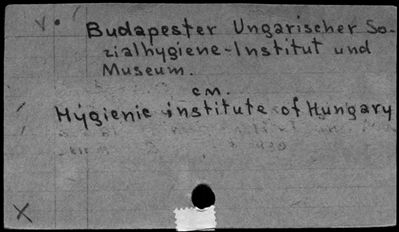 Budapester Ungarischer So-
zialhygiene-Institut und
Museum.
см.
Hygienic institute of Hungary
X